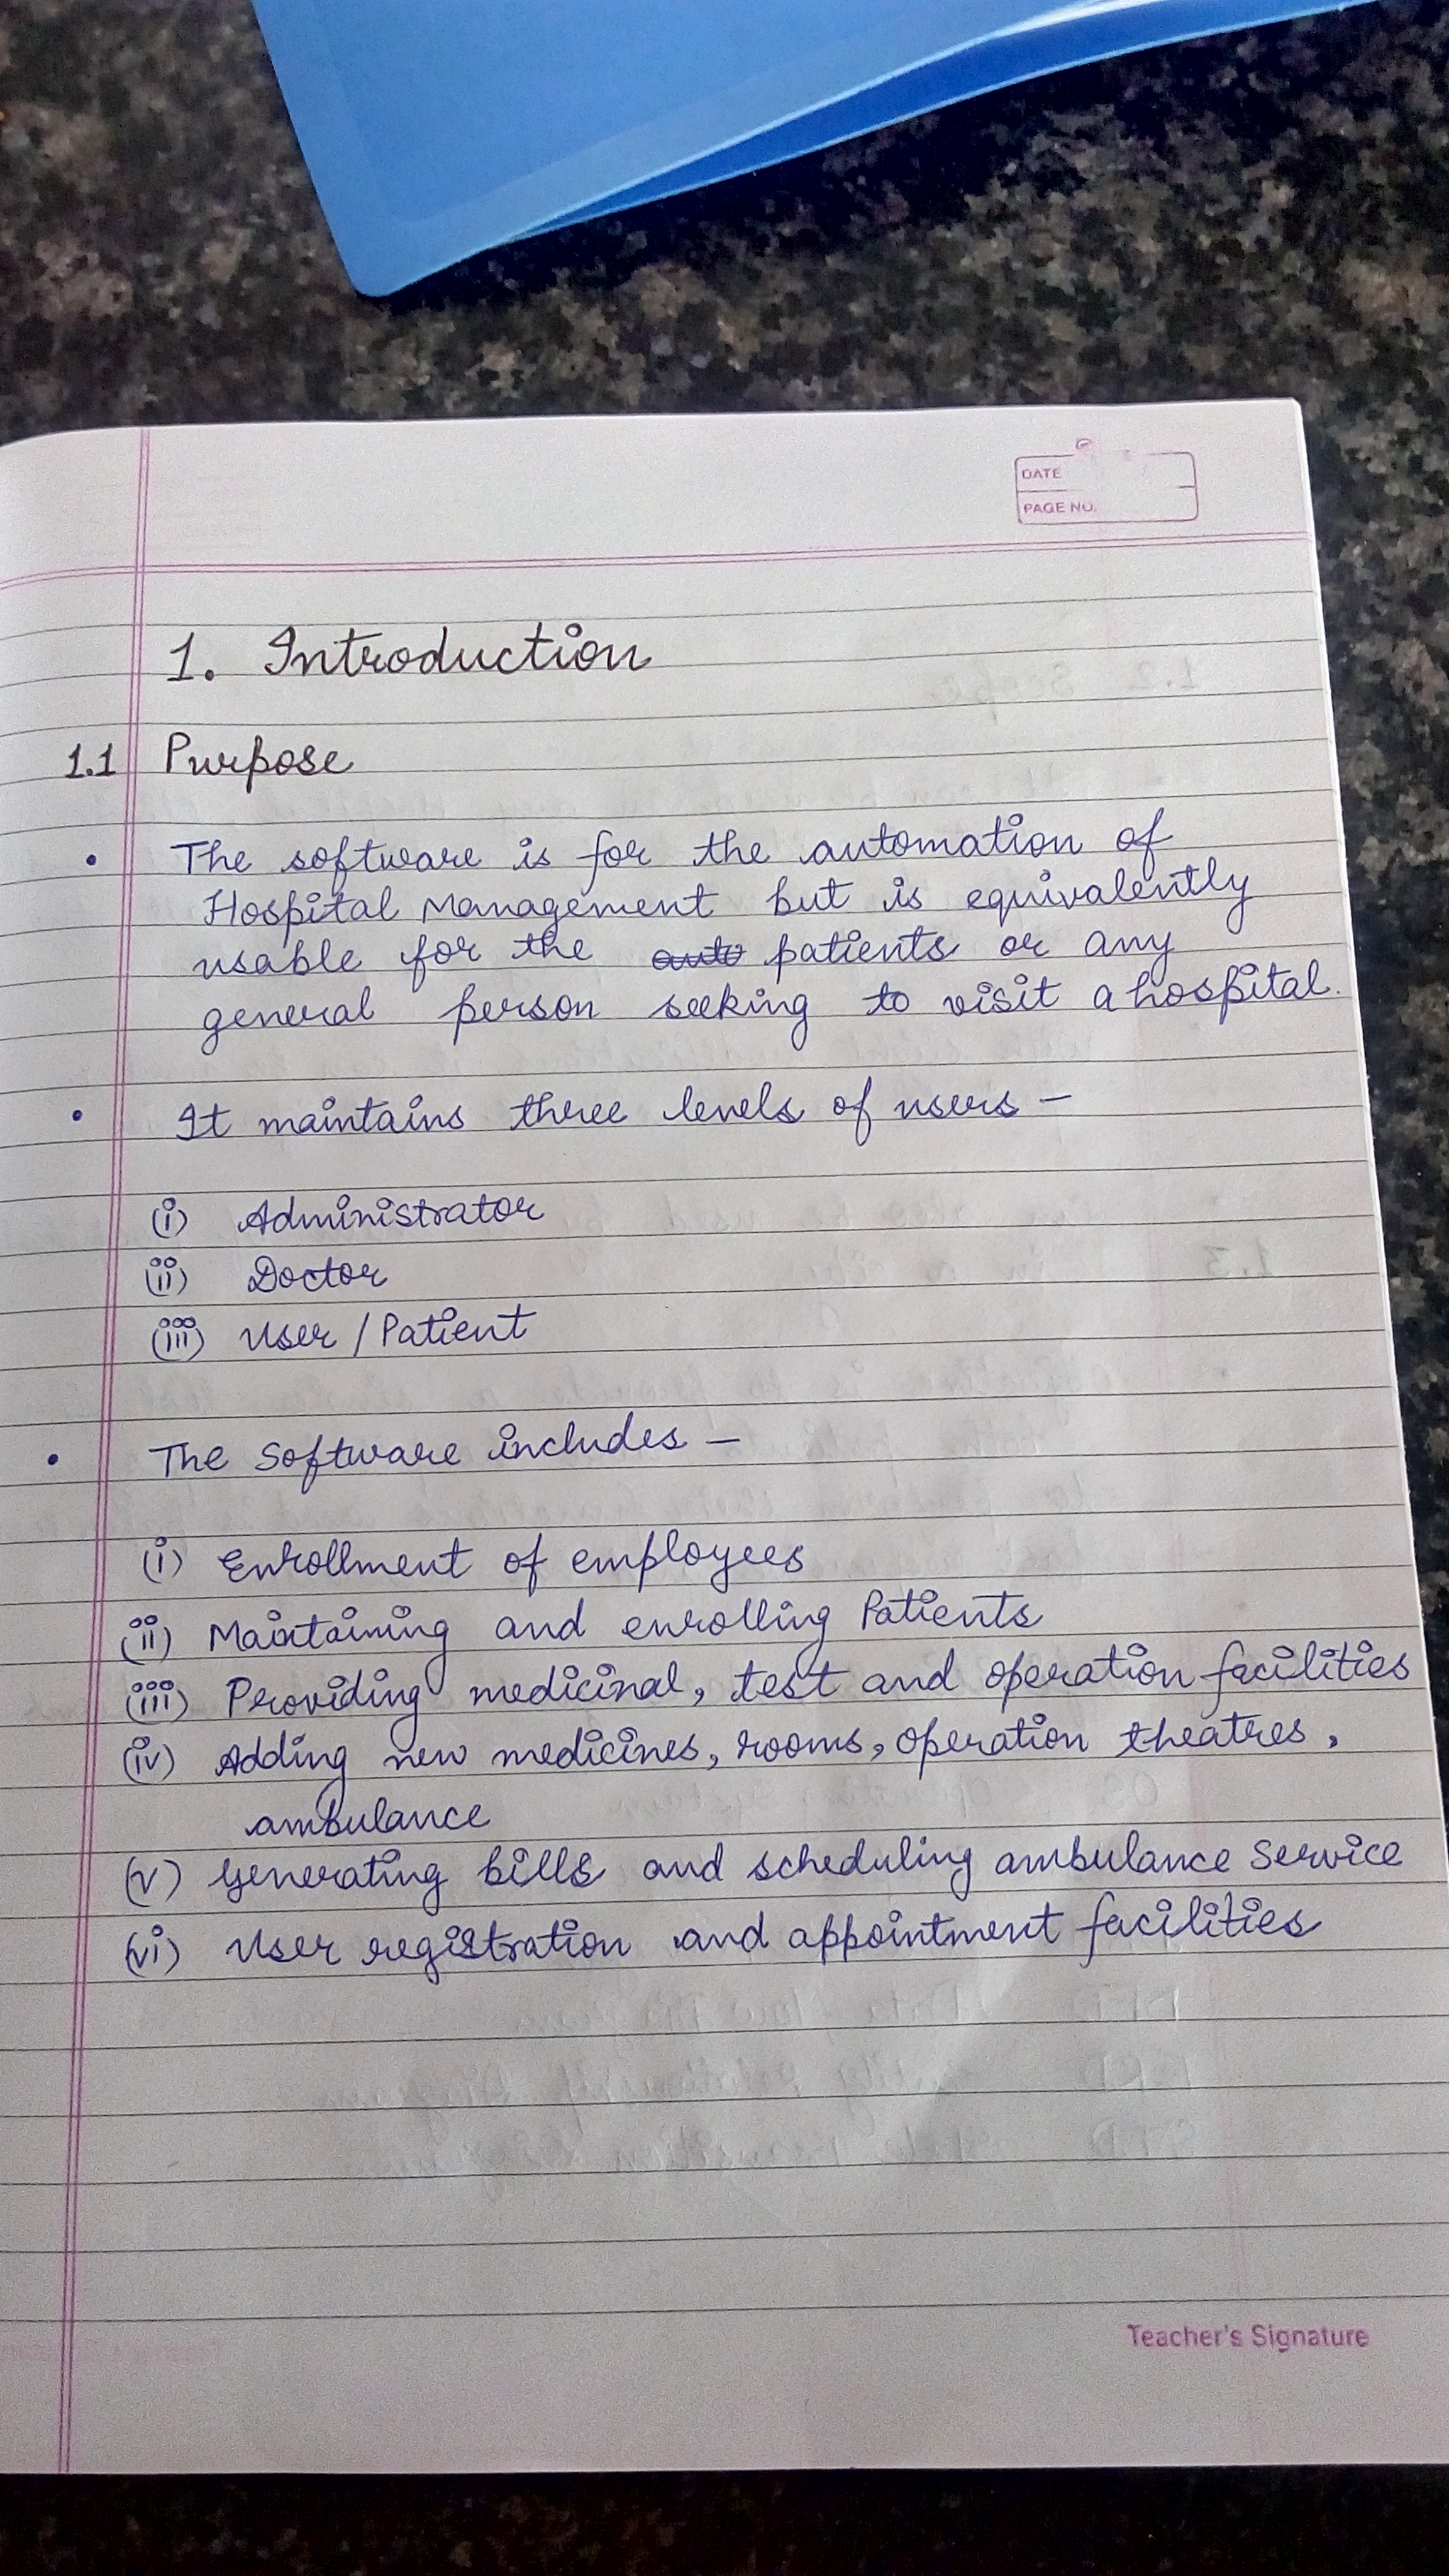 DATE
PAGE NO.
1. Introduction
1.1 Purpose
• The software is for the automation of
Hospital Management but is equivalently
usable for the auto patients or any
general person seeking to visit a hospital.
• It maintains three levels of users –
(i) Administrator
(ii) Doctor
(iii) User / Patient
• The Software includes –
(i) Enrollment of employees
(ii) Maintaining and enrolling Patients
(iii) Providing medicinal, test and operation facilities
(iv) Adding new medicines, rooms, operation theatres,
ambulance
(v) Generating bills and scheduling ambulance service
(vi) User registration and appointment facilities
Teacher's Signature